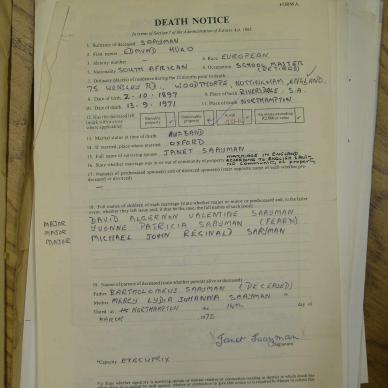 FORM A.
DEATH NOTICE
In terms of Section 7 of the Administration of Estates Act, 1965
1. Surname of deceased SAAYMAN
2. First names EDMUND HUGO
3. Identity number - 8. Race EUROPEAN
5. Nationality SOUTH AFRICAN 6. Occupation SCHOOL MASTER (RETIRED)
7. Ordinary place(s) of residence during the 12 months prior to death
75 WENSLEY RD., WOODTHORPE, NOTTINGHAM, ENGLAND.
8. Date of birth 2-10-1897 9. Place of birth RIVERSDALE S.A.
10. Date of death 13-9-1971 11. Place of death NORTHAMPTON
12. Has the deceased left
(mark with a cross
where applicable)
Movable property
Immovable property
13. Marital status at time of death HUSBAND
14. If married, place where married OXFORD
15. Full name of surviving spouse JANET SAAYMAN
16. State whether marriage was in or out of community of property MARRIAGE IN ENGLAND ACCORDING TO ENGLISH LAWS. NO COMMUNITY OF PROPERTY
17. Name(s) of predeceased spouse(s) and/or divorced spouse(s)
deceased or divorced)
18. Full names of children of deceased (state whether major or minor
MAJOR DAVID ALGERNON VALENTINE SAAYMAN
MAJOR YVONNE PATRICIA SAAYMAN (FEARN)
MAJOR MICHAEL JOHN REGINALD SAAYMAN
19. Names of parents of deceased (state whether parents alive or deceased)
Father BARTHOLOMEUS SAAYMAN (DECEASED)
Mother MERCY LYDIA JOHANNA SAAYMAN "
Dated at NORTHAMPTON the 14th day of
MARCH 1972
Janet Saayman
Signature
*Capacity EXECUTRIX